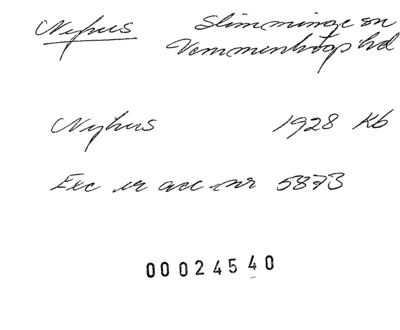 Nyhus Slimminge sn
Vemmenhögs hd
Nyhus 1928 Kb
Exc ur acc nr 5873
00024540